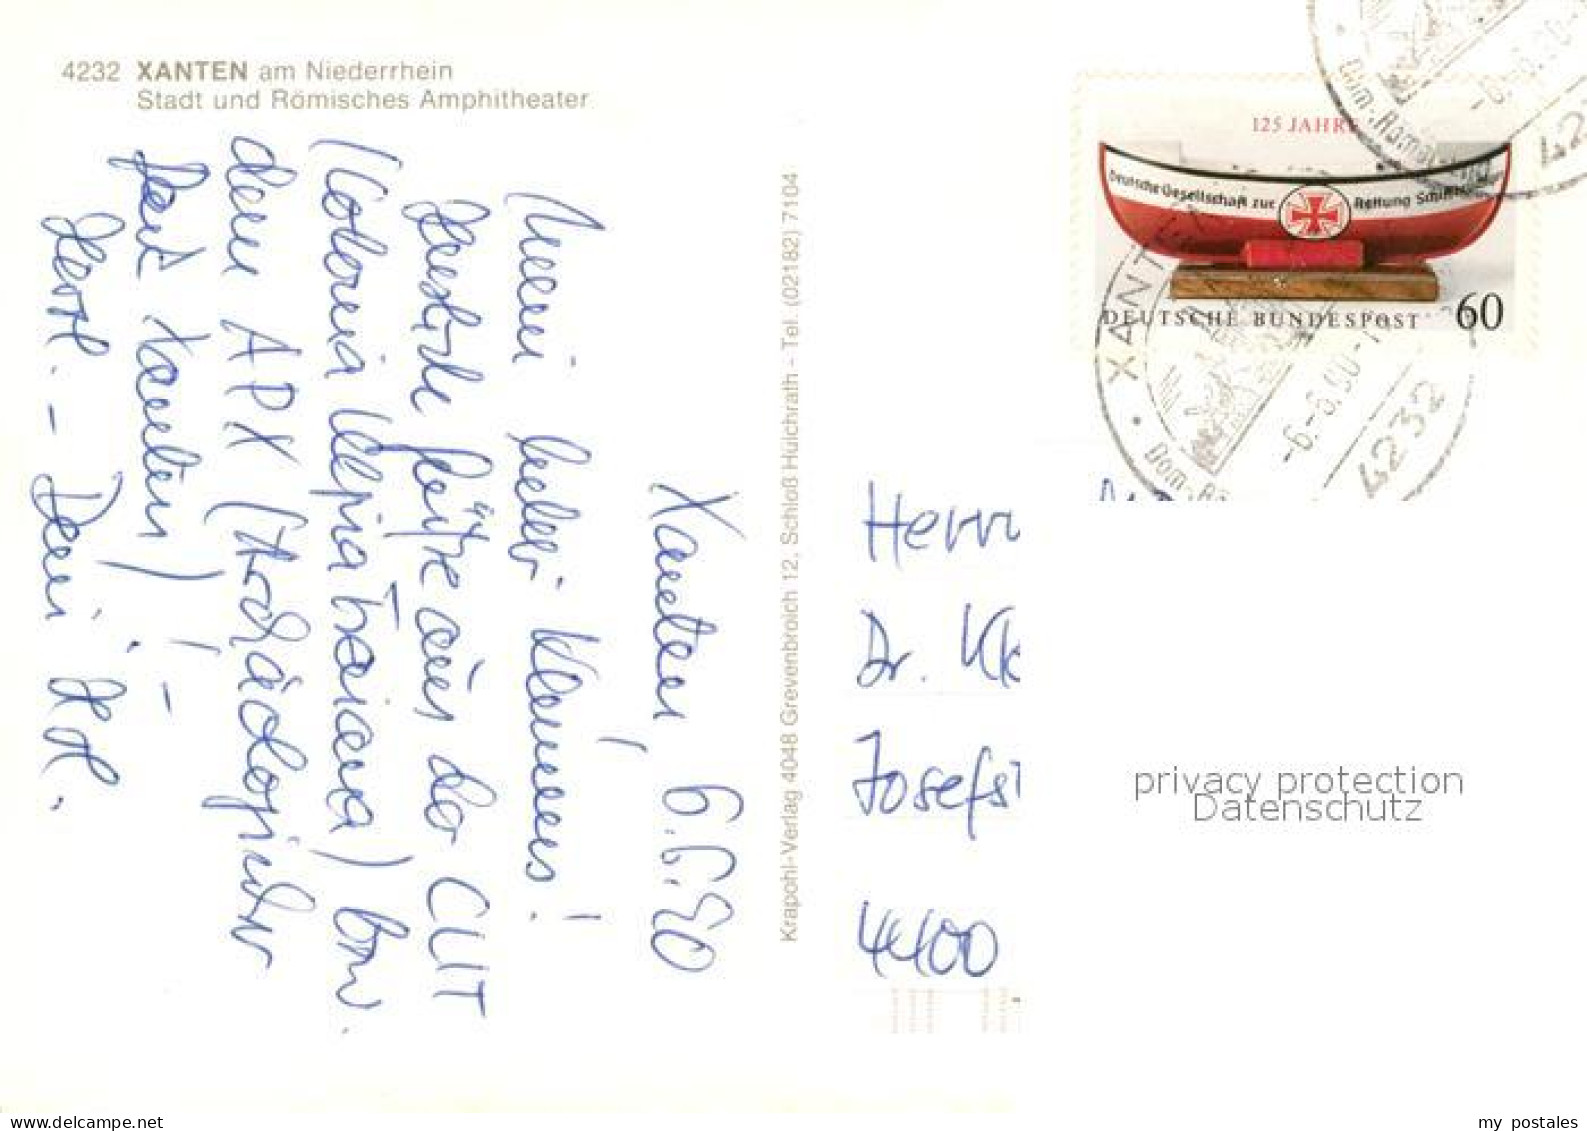 4232 XANTEN am Niederrhein
Stadt und Römisches Amphitheater
Xanten, 6.6.90
Mein lieber Klemens!
Herzliche Grüße aus der CUT
(Colonia Ulpia Traiana) bzw.
dem APX (Archäologischer
Park Xanten)! –
Herzl. – Dein H.
Krapohl-Verlag 4048 Grevenbroich 12, Schloß Hülchrath - Tel. (02182) 7104
125 JAHRE
Deutsche Gesellschaft zur Rettung Schiff
DEUTSCHE BUNDESPOST 60
XANT
-6.-6.90-1
4232
Dom-, Römer-
-6.-6.90-
423
Herrn
Dr. Kl
Josefst
4400
privacy protection
Datenschutz
www.delcampe.net
my_postales